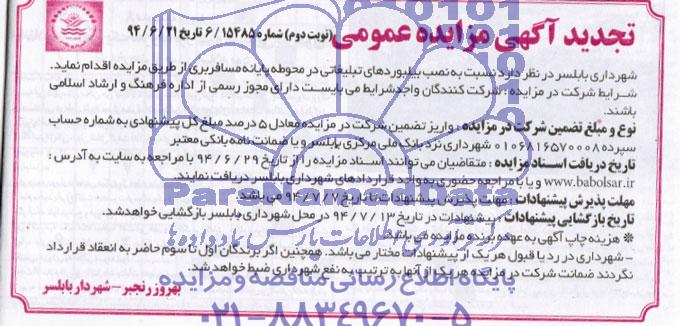 تجدید آگهی مزایده عمومی (نوبت دوم) شماره ۶/۱۵۴۸۵ تاریخ ۹۴/۶/۲۱
شهرداری بابلسر در نظر دارد نسبت به نصب بیلبوردهای تبلیغاتی در محوطه پایانه مسافربری از طریق مزایده اقدام نماید.
شرایط شرکت در مزایده : شرکت کنندگان واجد شرایط می بایست دارای مجوز رسمی از اداره فرهنگ و ارشاد اسلامی
باشند.
نوع و مبلغ تضمین شرکت در مزایده : واریز تضمین شرکت در مزایده معادل ۵ درصد مبلغ کل پیشنهادی به شماره حساب
سپرده ۰۱۰۶۸۱۶۵۷۰۰۰۸ شهرداری نزد بانک ملی مرکزی بابلسر و یا ضمانت نامه بانکی معتبر
تاریخ دریافت اسناد مزایده : متقاضیان می توانند اسناد مزایده را از تاریخ ۹۴/۶/۲۹ با مراجعه به سایت به آدرس :
www.babolsar.ir و یا با مراجعه حضوری به واحد قراردادهای شهرداری بابلسر دریافت نمایند.
مهلت پذیرش پیشنهادات : مهلت پذیرش پیشنهادات تا تاریخ ۹۴/۷/۷ می باشد.
تاریخ بازگشایی پیشنهادات : پیشنهادات در تاریخ ۹۴/۷/۱۳ در محل شهرداری بابلسر بازگشایی خواهد شد.
* هزینه چاپ آگهی به عهده برنده مزایده می باشد.
- شهرداری در رد یا قبول هر یک از پیشنهادات مختار می باشد. همچنین اگر برندگان اول تا سوم حاضر به انعقاد قرارداد
نگردند ضمانت شرکت در مزایده هر یک از آنها به ترتیب به نفع شهرداری ضبط خواهد شد.
بهروز رنجبر - شهردار بابلسر
پایگاه اطلاع رسانی مناقصه و مزایده
۰۲۱-۸۸۳۴۹۶۷۰-۵